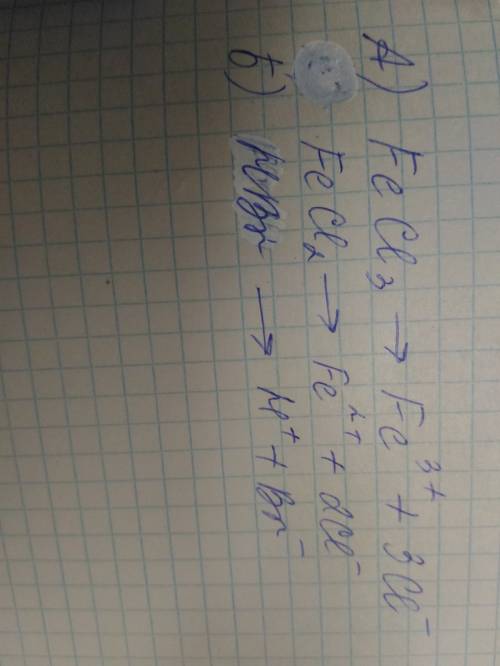 А) FeCl₃ → Fe³⁺ + 3Cl⁻
FeCl₂ → Fe²⁺ + 2Cl⁻
б) HBr → H⁺ + Br⁻